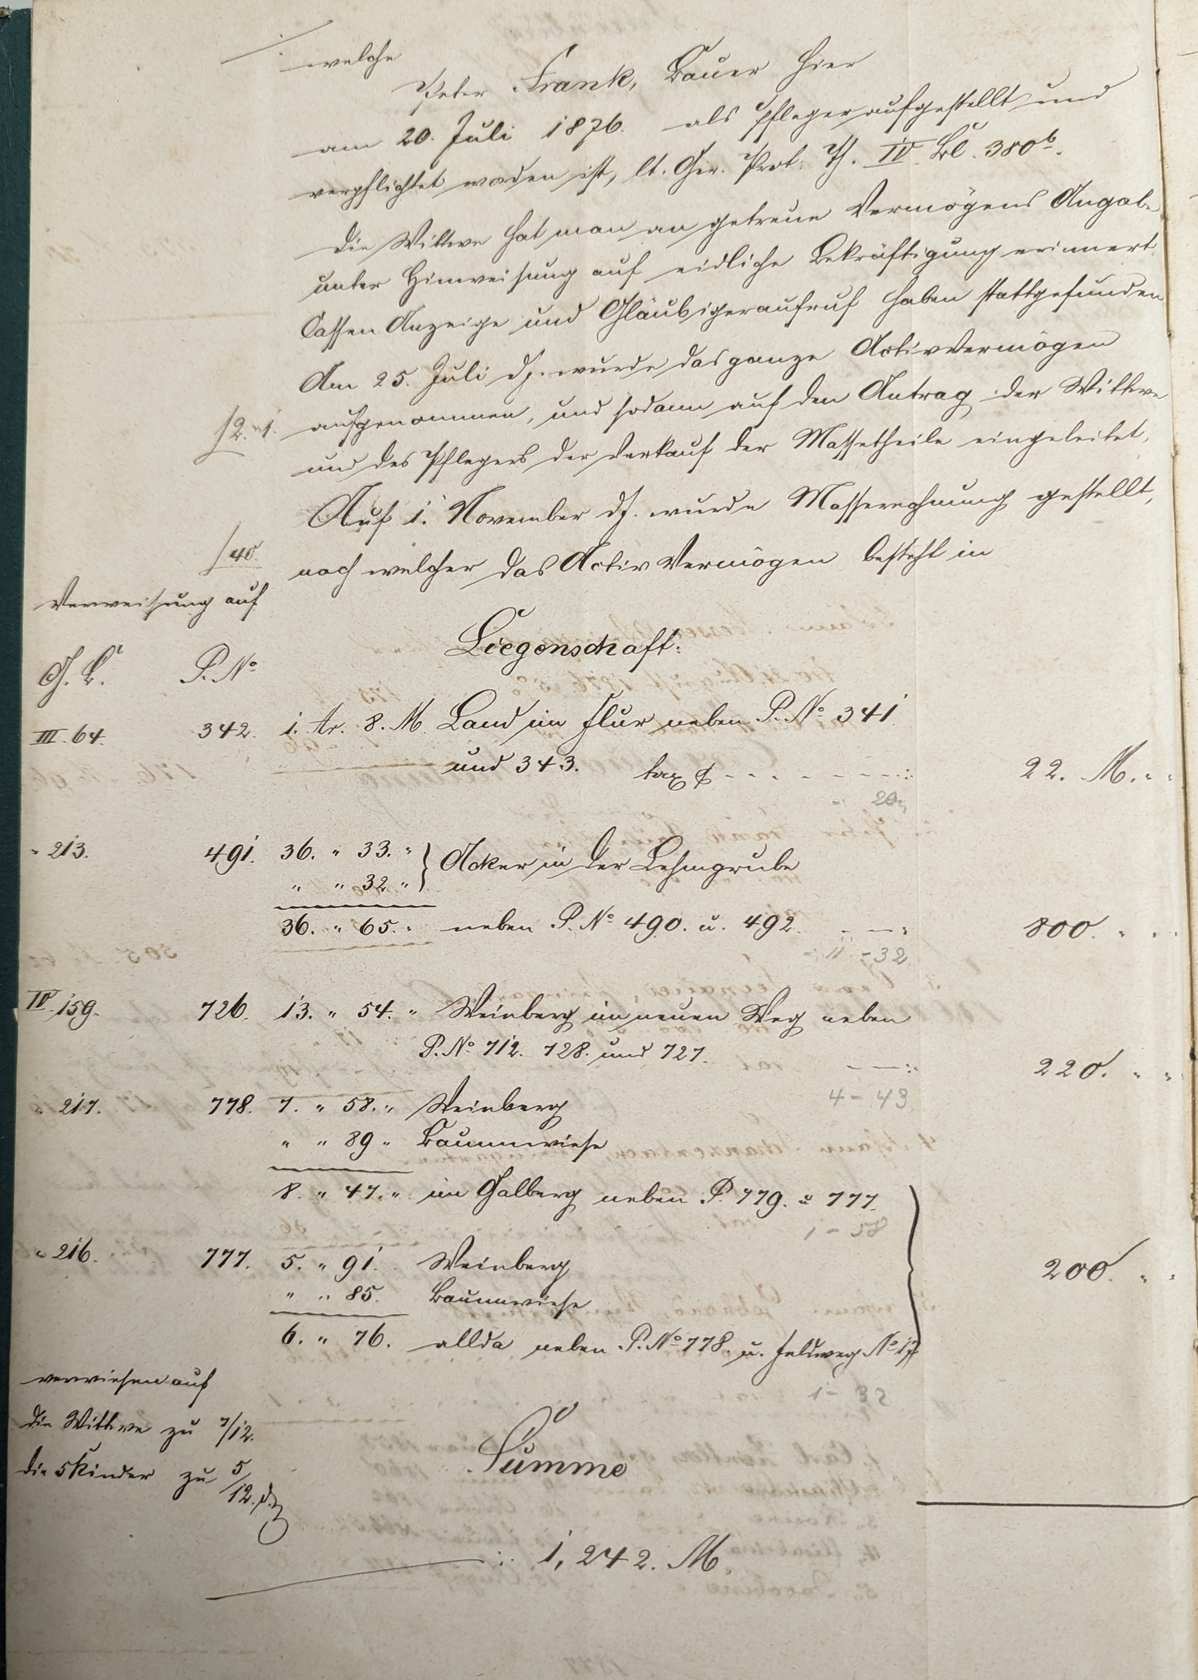 welche
Peter Frank, Bauer hier
am 20. Juli 1876. als Pfleger aufgestellt und
verpflichtet worden ist, lt. Ger. Prot. Th. IV. Bl. 380b.
Die Wittwe hat man an getreue Vermögens Angabe
unter Hinweisung auf eidliche Bekräftigung erinnert.
Cassen Anzeige und Gläubigeraufruf haben stattgefunden
Am 25. Juli ds. wurde das ganze Activvermögen
/2.-1. aufgenommen, und sodann auf den Antrag der Wittwe
und des Pflegers der Verkauf der Massetheile eingeleitet.
Auf 1. November ds. wurde Masserechnung gestellt,
/40. nach welcher das Activ Vermögen besteht in
Verweisung auf
Liegenschaft:
G. B. P. No
III. 64. 342. 1. Ar. 8. M. Land im Flur neben P. No 341
und 343. tax 22. M. "
20
" 213. 491. 36. " 33. " } Acker in der Lehmgrube
" " 32 "
36. " 65. " neben P. No 490. u. 492. 800. " "
11 - 32
IV. 159. 726. 13. " 54. " Weinberg im neuen Weg neben
P. No 712. 728. und 727. 220. " "
4 - 43
" 217. 778. 7. " 58. " Weinberg
" " 89 " Baumwiese
8. " 47. " im Galberg neben P. 779. & 777.
1 - 58
" 216. 777. 5. " 91. Weinberg 200. " "
" " 85. Baumwiese
6. " 76. allda neben P. No 778 u. Feldweg No 17
1 - 32
verwiesen auf
die Wittwe zu 7/12.
die 5 Kinder zu 5/12.
Summe
1,242. M.